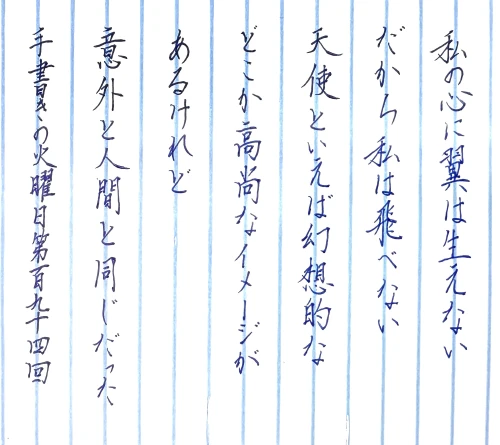 私の心に翼は生えない
だから私は飛べない
天使といえば幻想的な
どこか高尚なイメージが
あるけれど
意外と人間と同じだった
手書きの火曜日第百九十四回